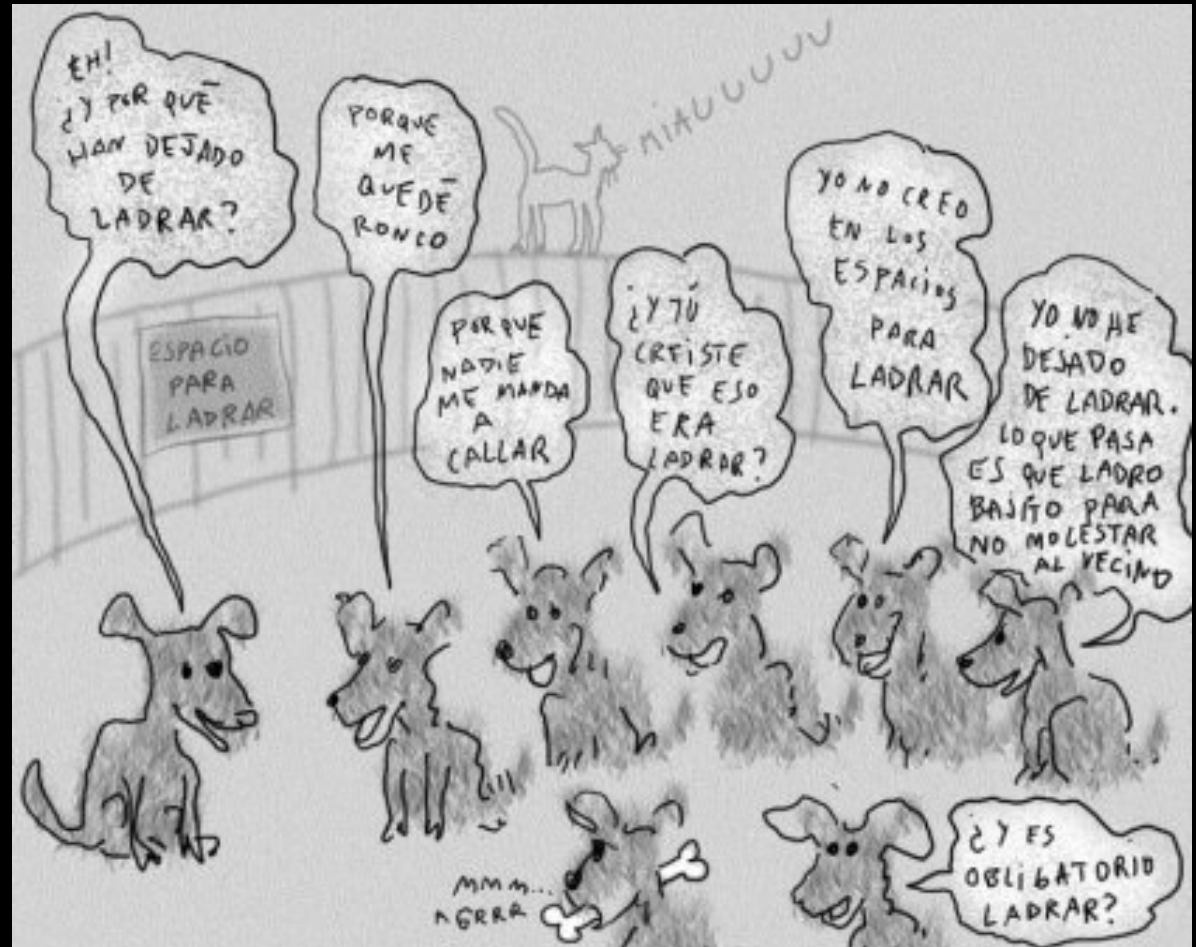 EH!
¿Y POR QUÉ
HAN DEJADO
DE
LADRAR?
PORQUE
ME
QUEDÉ
RONCO
MIAUUUUU
ESPACIO
PARA
LADRAR
PORQUE
NADIE
ME MANDA
A
CALLAR
¿Y TÚ
CREISTE
QUE ESO
ERA
LADRAR?
YO NO CREO
EN LOS
ESPACIOS
PARA
LADRAR
YO NO HE
DEJADO
DE LADRAR.
LO QUE PASA
ES QUE LADRO
BAJITO PARA
NO MOLESTAR
AL VECINO
MMM...
AGRRR
¿Y ES
OBLIGATORIO
LADRAR?